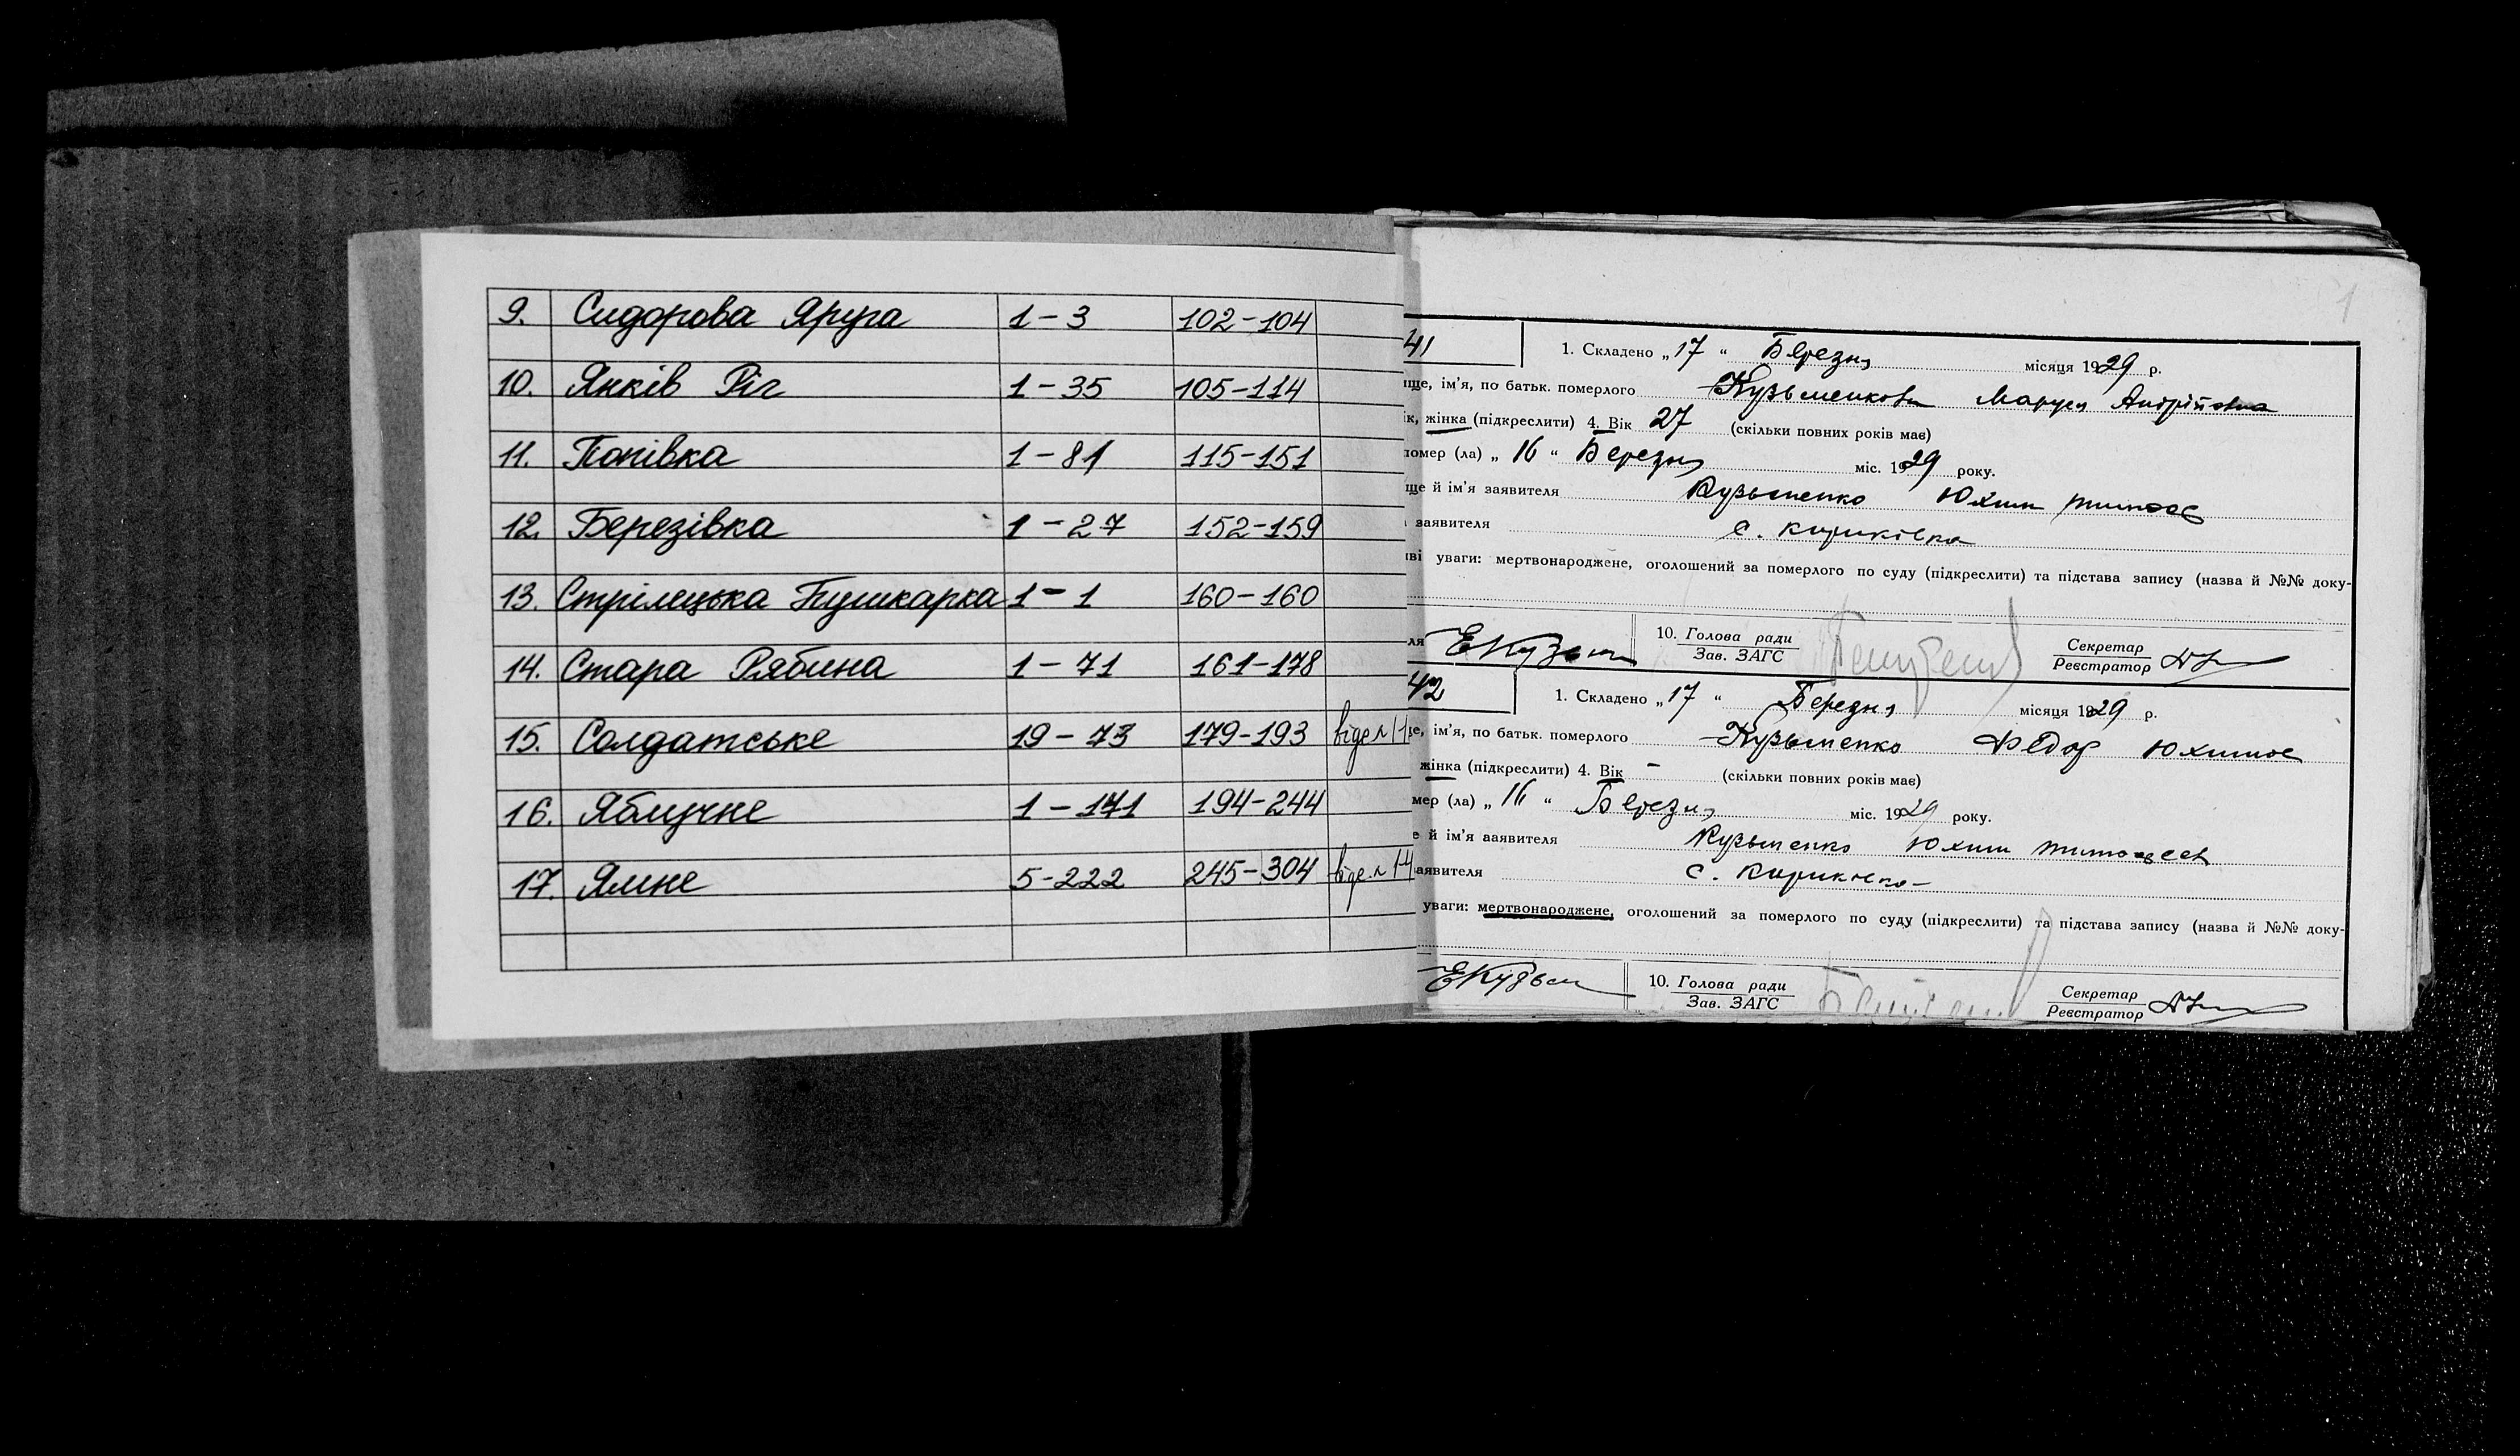 9. Сидорова Яруга 1-3 102-104
10. Янків Ріг 1-35 105-114
11. Попівка 1-81 115-151
12. Березівка 1-27 152-159
13. Стрілецька Пушкарка 1-1 160-160
14. Стара Рябина 1-71 161-178
15. Солдатське 19-73 179-193
16. Яблучне 1-171 194-244
17. Ямне 5-222 245-304
1
41 1. Складено „17“ Березня місяця 1929 р.
ище, ім'я, по батьк. померлого Кузьменкова Маруся Андріївна
ік, жінка (підкреслити) 4. Вік 27 (скільки повних років має)
помер (ла) „16“ Березня міс. 1929 року.
ще й ім'я заявителя Кузьменко Юхим
заявителя с. Кириківка
ві уваги: мертвонароджене, оголошений за померлого по суду (підкреслити) та підстава запису (назва й №№ доку-
ля ЕКузьм 10. Голова ради Секретар
Зав. ЗАГС Реєстратор
42 1. Складено „17“ Березня місяця 1929 р.
е, ім'я, по батьк. померлого Кузьменко Федор Юхимов
жінка (підкреслити) 4. Вік - (скільки повних років має)
мер (ла) „16“ Березня міс. 1929 року.
е й ім'я ааявителя Кузьменко Юхим
заявителя с. Кириківка
уваги: мертвонароджене, оголошений за померлого по суду (підкреслити) та підстава запису (назва й №№ доку-
ЕКузьм 10. Голова ради Секретар
Зав. ЗАГС Реєстратор